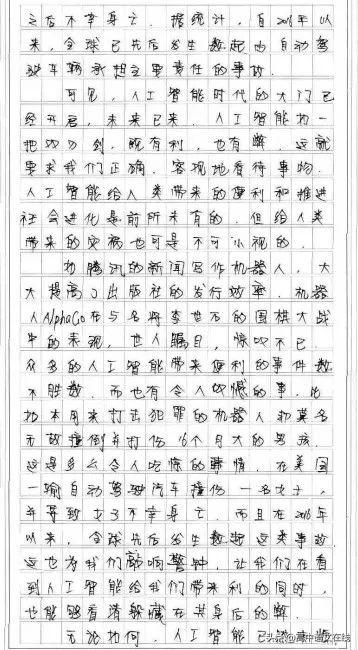 之后不幸身亡. 据统计, 自2016年以
来, 全球已先后发生数起由自动驾
驶车辆承担主要责任的事故.
可见, 人工智能时代的大门已
经开启, 未来已来. 人工智能如一
把双刃剑, 既有利, 也有弊. 这就
要求我们正确、客观地看待事物.
人工智能给人类带来的便利和推进
社会进化是前所未有的. 但给人类
带来的灾祸也可是不可小视的.
如腾讯的新闻写作机器人, 大
大提高了出版社的发行效率. 机器
人AlphaGo在与名将李世石的围棋大战
中的表现, 世人瞩目, 惊叹不已.
众多的人工智能带来便利的事件数
不胜数. 而也有令人叹憾的事, 比
如本用来打击犯罪的机器人却莫名
无故撞倒并打伤16个月大的男孩.
这是多么令人吃惊的事情. 在美国
一辆自动驾驶汽车撞伤一名女子,
并导致女子不幸身亡. 而且在2016年
以来, 全球先后发生数起这类事故
这也为我们敲响警钟, 让我们在看
到人工智能给我们带来利的同时,
也能够看清躲藏在其身后的弊.
无论如何, 人工智能已
头条@高中语文在线